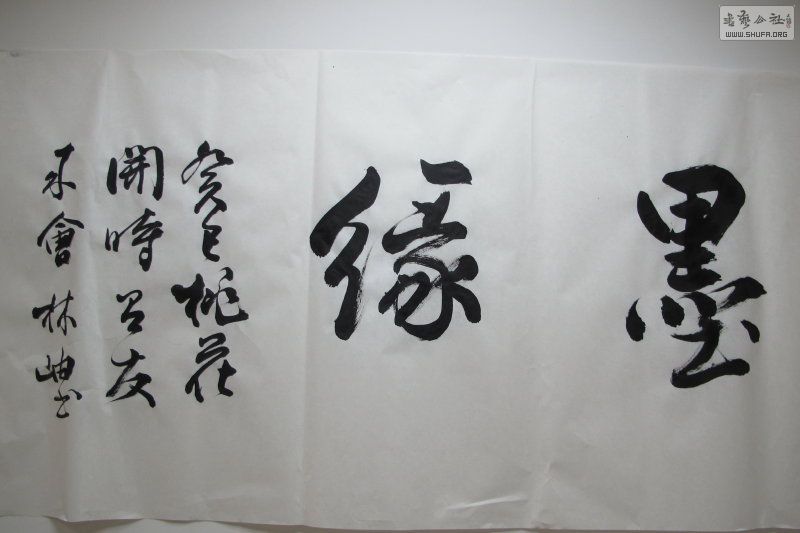 墨緣
癸巳桃花
開時呂友
來會林岫書
書藝公社
WWW.SHUFA.ORG